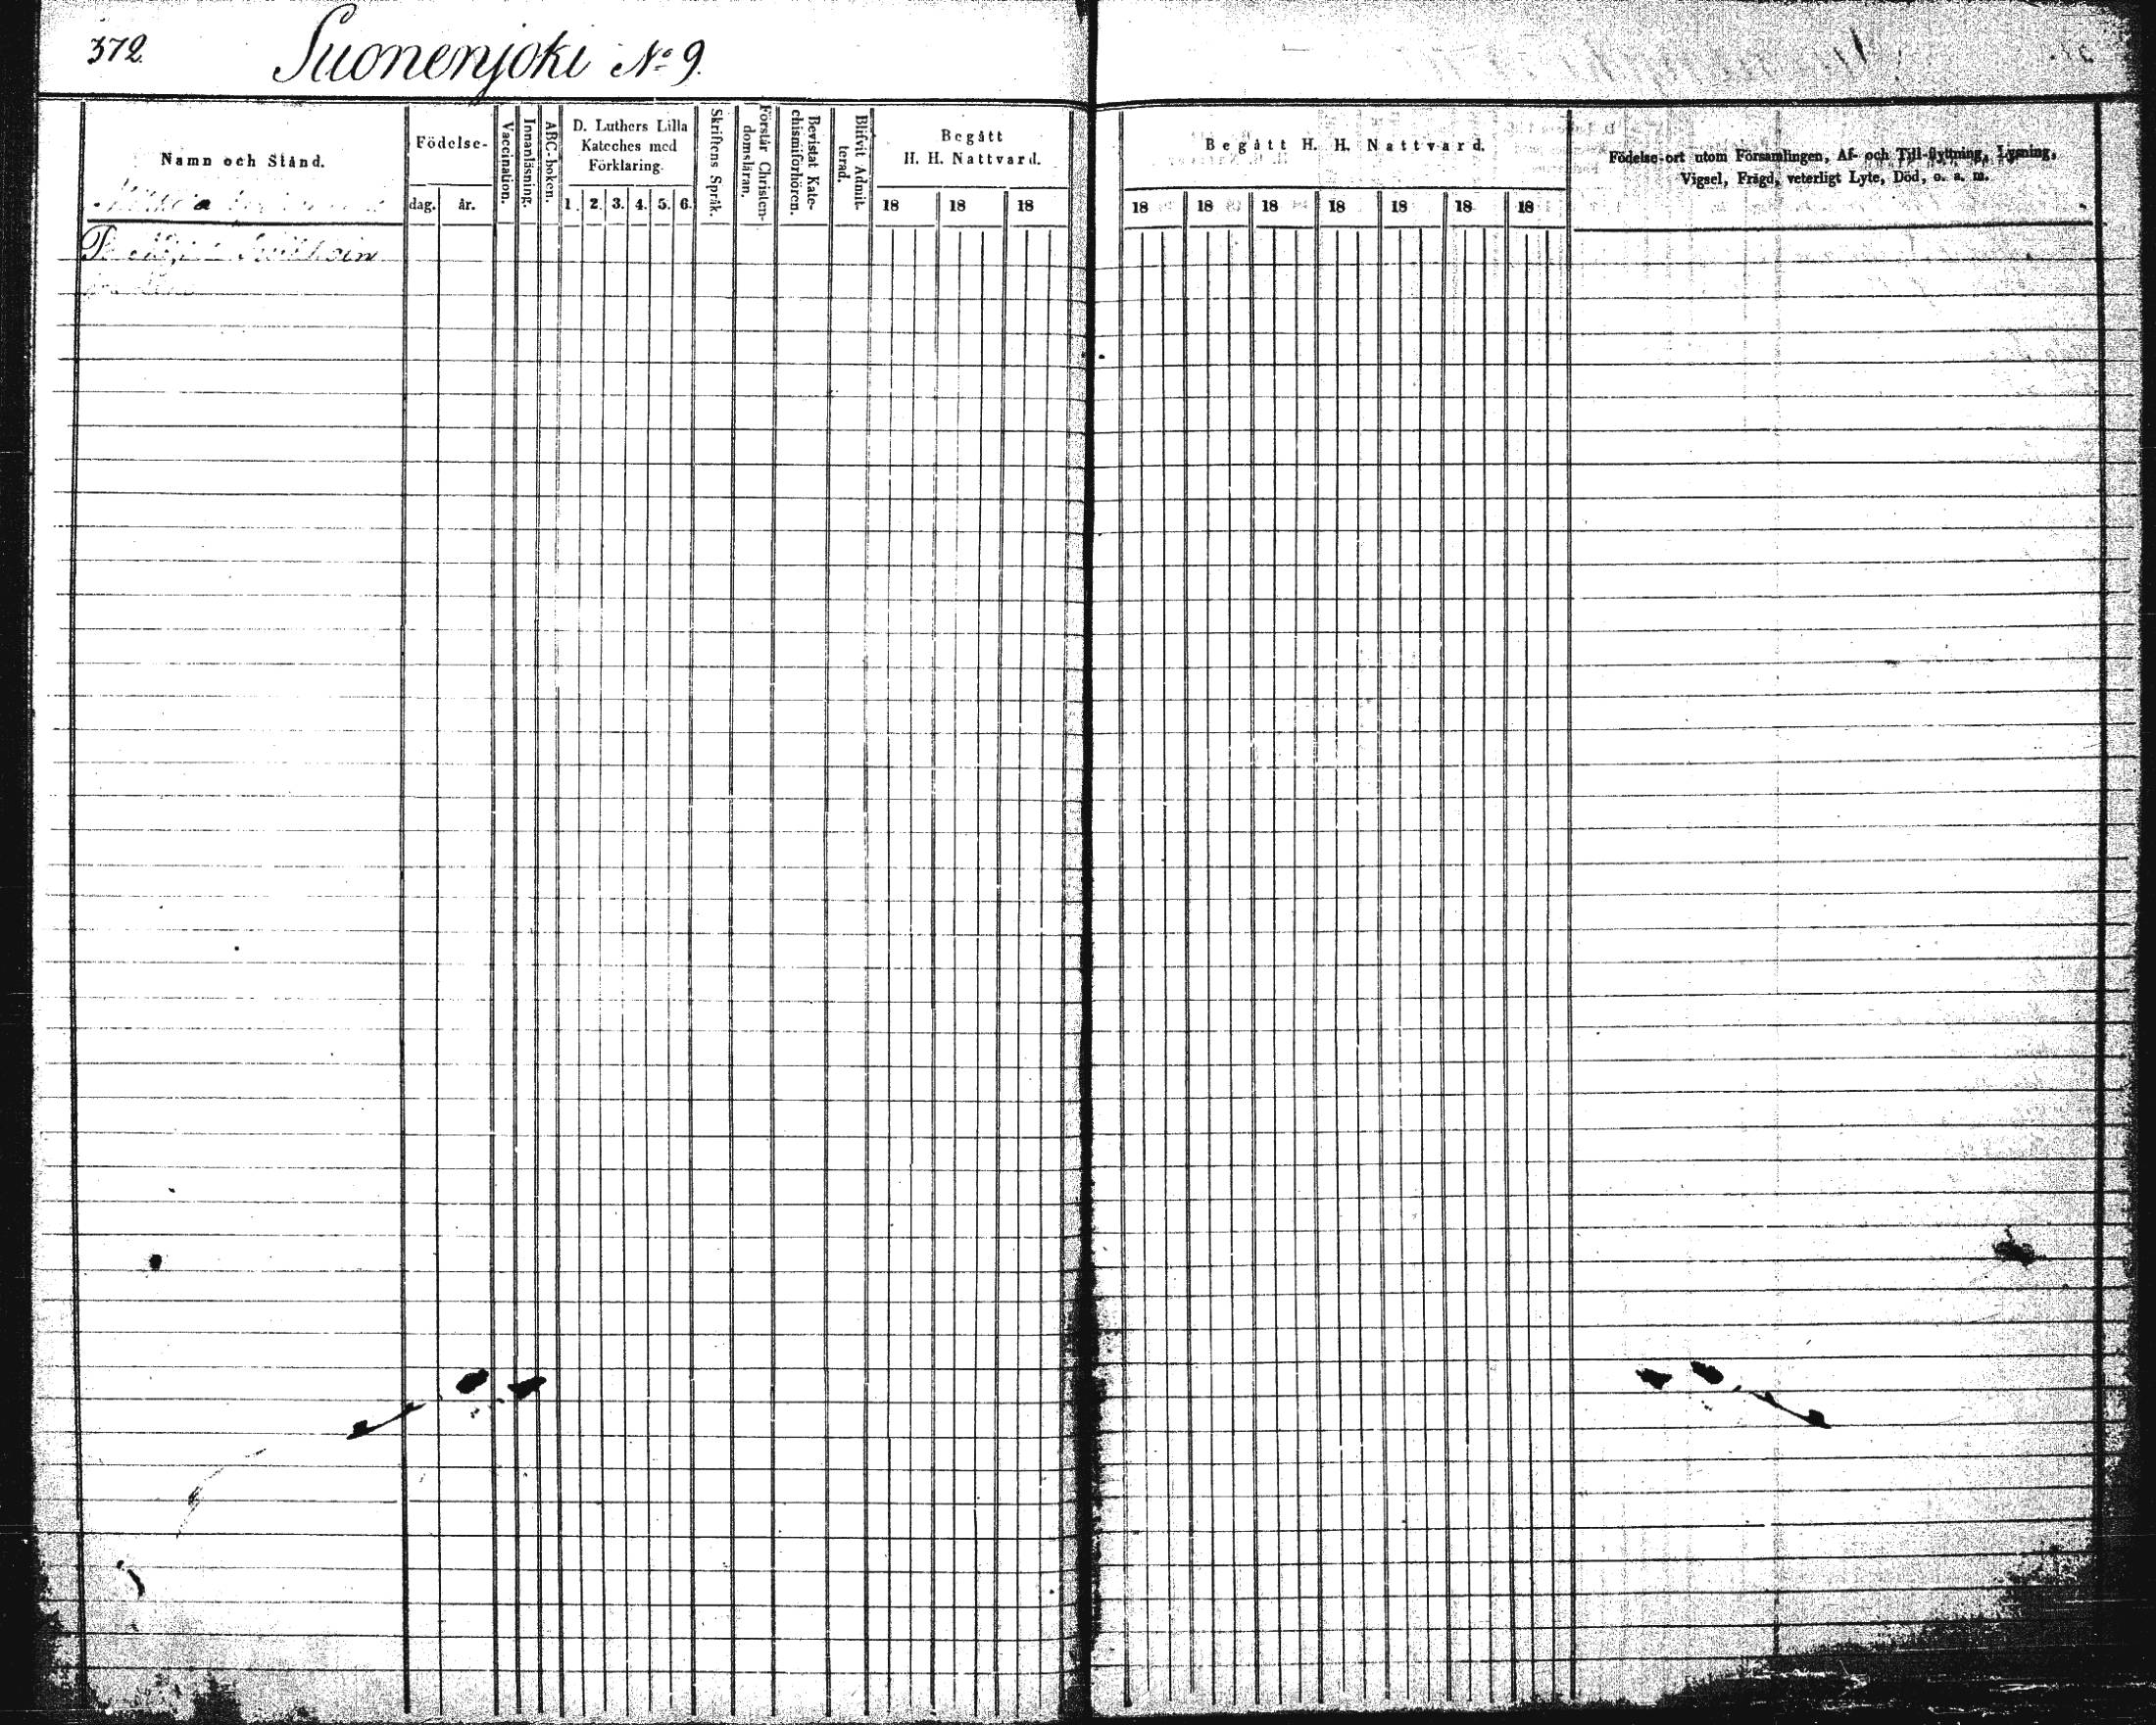 372.
Suonenjoki No 9.
Namn och Stånd.
Födelse-
dag.
år.
Vaccination.
Innanläsning.
ABC-boken.
D. Luthers Lilla
Kateches med
Förklaring.
1. 2. 3. 4. 5. 6.
Skriftens Språk.
Förstår Christen-
domsläran.
Bevistat Kate-
chismiförhören.
Blifvit Admit-
terad.
Begått
H. H. Nattvard.
18 18 18
Begått H. H. Nattvard.
18 18 18 18 18 18 18
Födelse-ort utom Församlingen, Af- och Till-flyttning, Lysning,
Vigsel, Frägd, veterligt Lyte, Död, o. s. m.